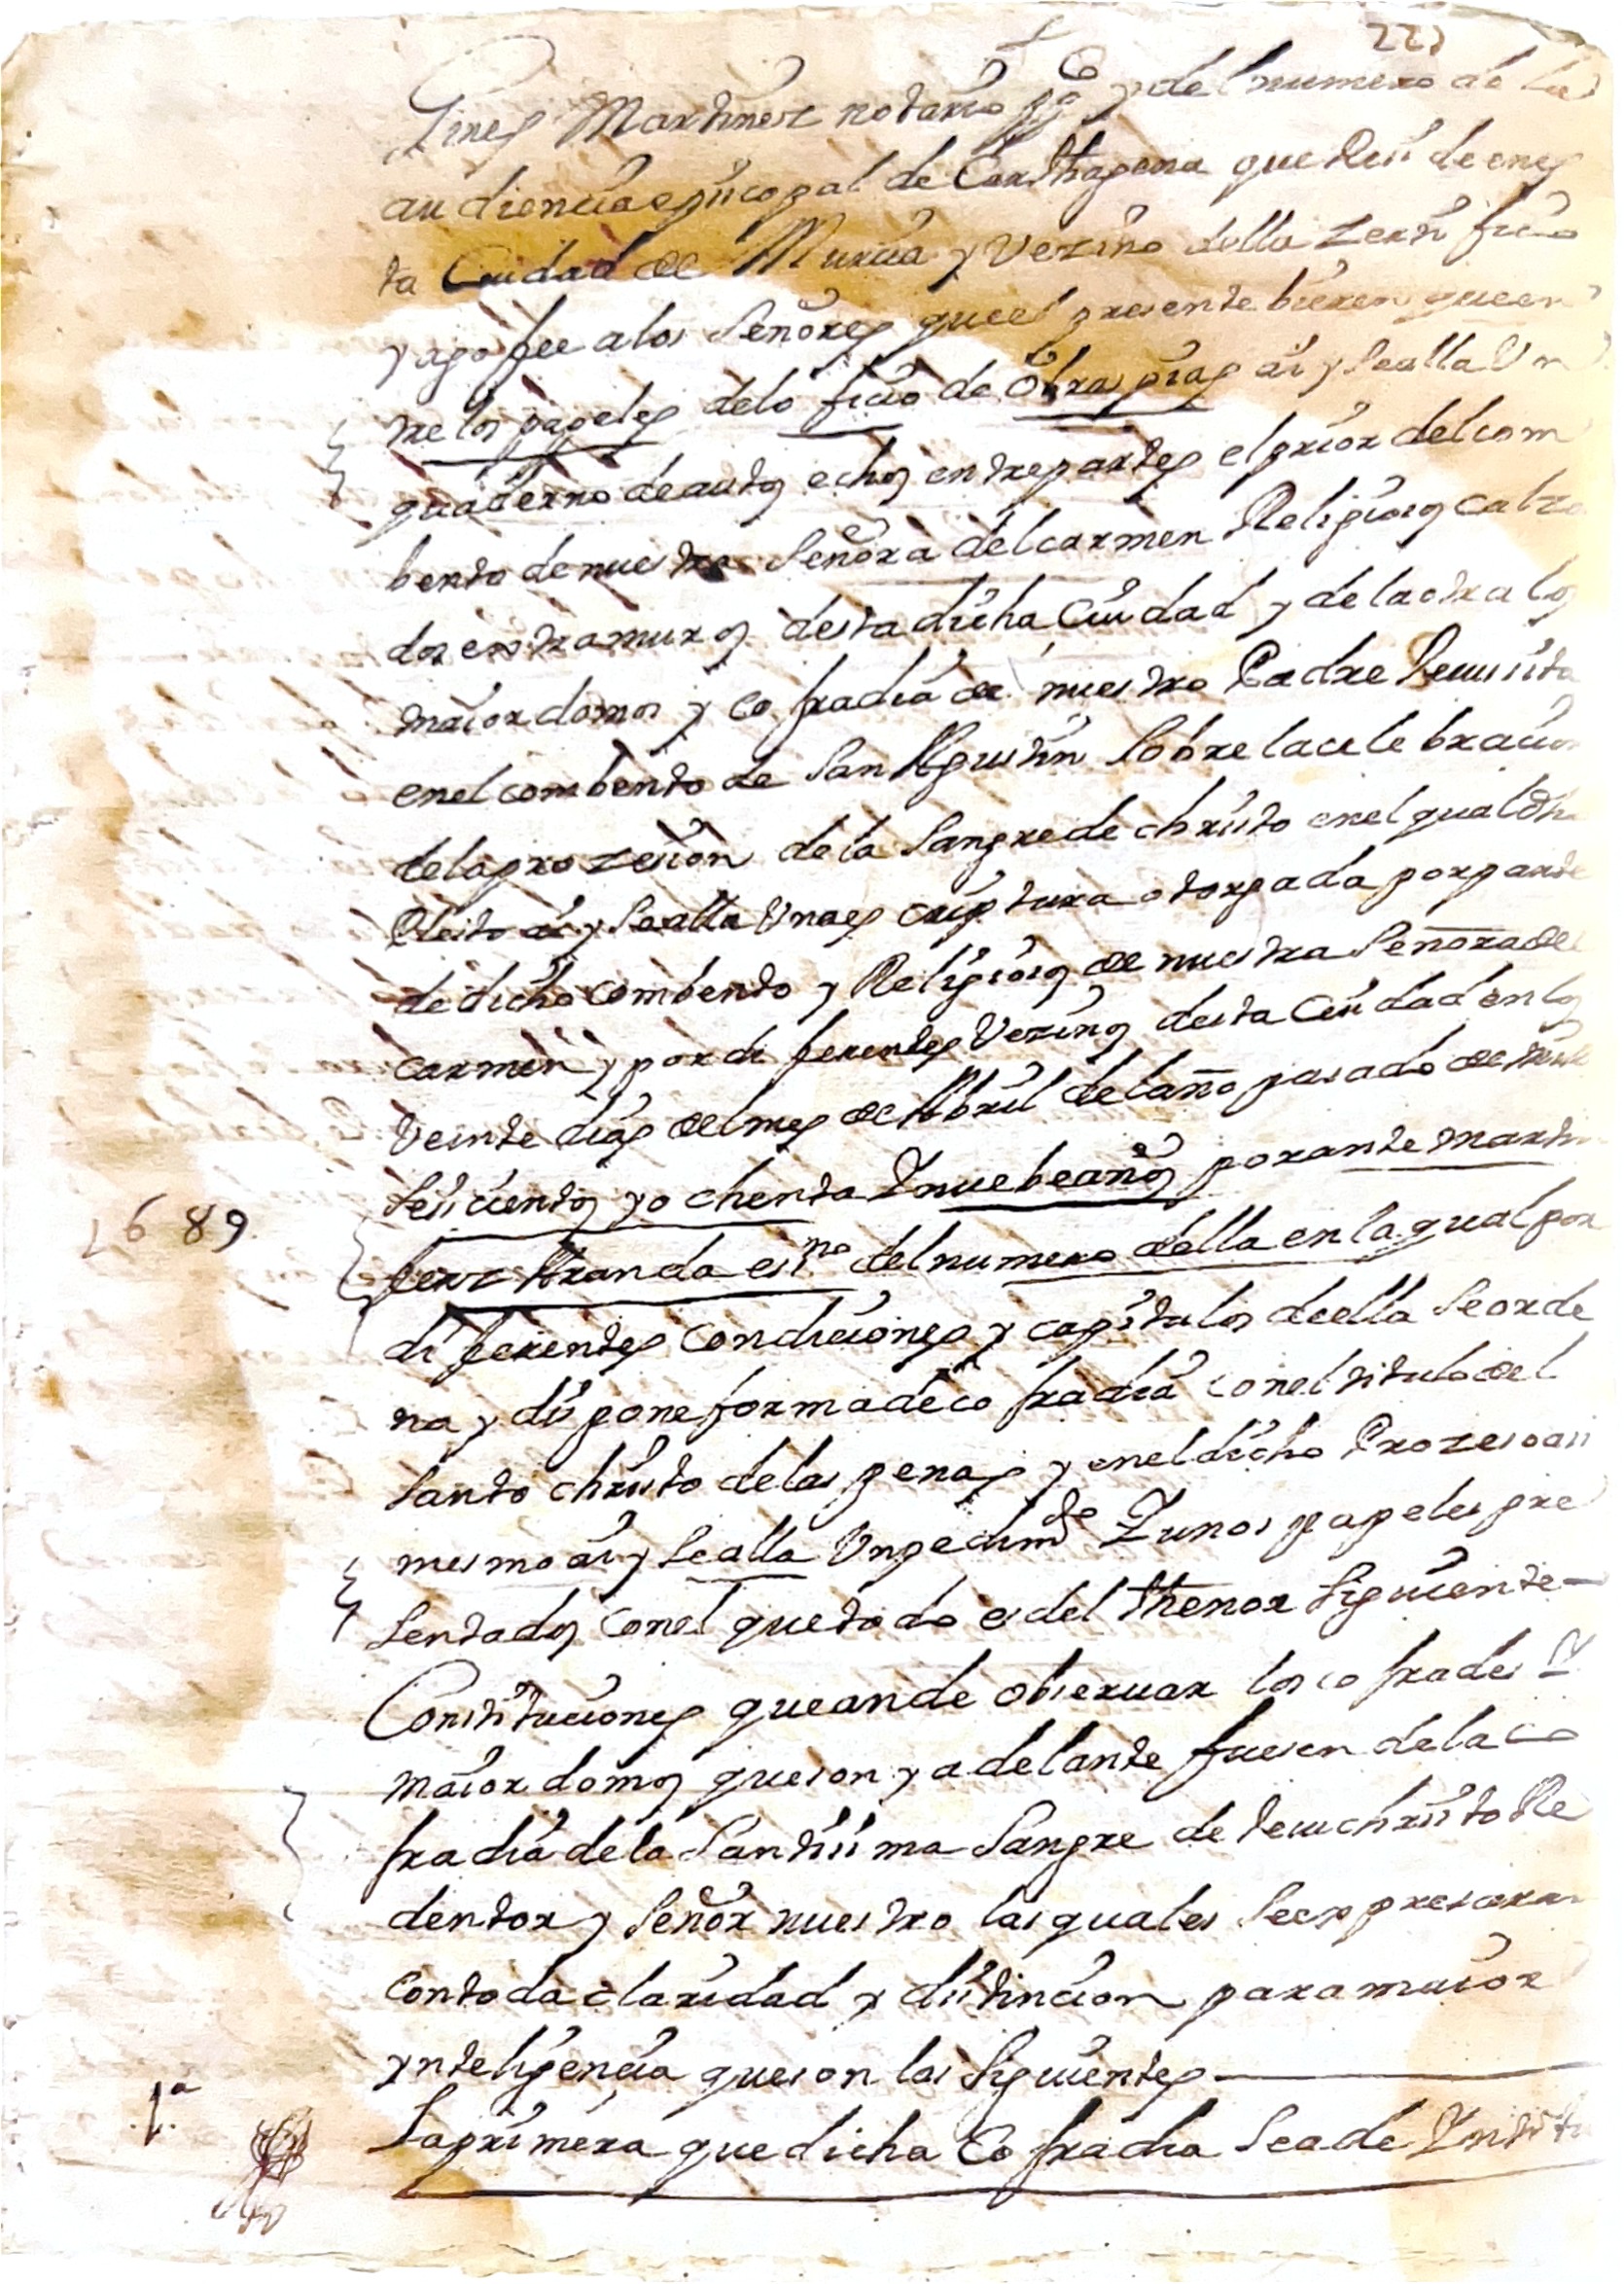 221
Gines Martinez notario ppco y del numero de la
audiencia episcopal de Carthagena que Resi de enes
ta Ciudad de Murcia y Vezino della Zerti fico
y ago fee a los Señores que el presente bieren que en
tre los papeles delo ficio de obras pias ai y Se alla Un
quaderno de autos echos entre partes el prior del com
bento de nuestra Señora del carmen Religiosos calza
dos extramuros desta dicha Ciudad y de la otra los
maiordomos y co fradia de nuestro Padre Jesus sita
en el combento de San Agustin Sobre la cele bracion
de la prozesion de la Sangre de christo en el qual dho
Pleito ai y Se alla Una es criptura otorgada por parte
de dicho combento y Religiosos de nuestra Señora del
carmen y por di ferentes Vezinos desta Ciudad en los
Veinte dias del mes de Abril del año pasado de mill
Seiscientos y ochenta Y nuebe años por ante martin
ferz Aranda essno del numero della en la qual por
di ferentes Condiciones y capitulos de ella Se orde
na y dis pone forma de co fradia con el titulo del
Santo christo de las penas y en el dicho Prozeso asi
mesmo ai y Se alla Un pedimto Y unos papeles pre
sentados con el que todo es del thenor Siguiente
Constituciones que an de observar los co frades Y
maiordomos que son y adelante fueren de la co
fradia de la Santissima Sangre de Jesuchristo Re
dentor y Señor nuestro las quales Se expresaran
con toda claridad y distincion para maior
ynteligencia que son las Siguientes
1689
1ª
La primera que dicha Co fradia Sea de Yntitu